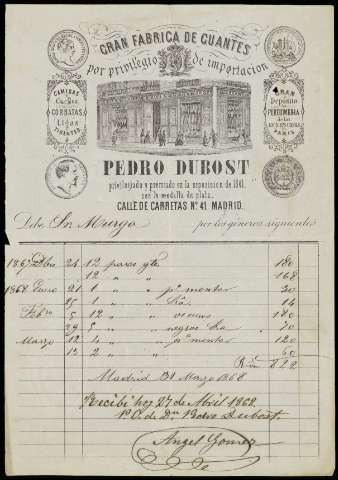 GRAN FABRICA DE GUANTES
por privilegio de importacion
CAMISAS
Cuellos
CORBATAS
Ligas
TIRANTES
GRAN
Depósito
de
PERFUMERIA
de las
PARIS
PEDRO DUBOST
privilegiado y premiado en la esposicion de 1841.
con la medalla de plata.
CALLE DE CARRETAS Nº 41. MADRID.
Debe Sn Murga por los géneros siguientes
1867 Dbre 24 12 pares gtes 180
12 " " 168
1868 Enero 21 1 " " pa montar 30
25 1 " " 14
Febro 5 12 " " 180
29 5 " " negros 70
Marzo 12 4 " " pa montar 120
13 2 " " 60
Rvn 822
Madrid 31 Marzo 1868
Recibi hoy 27 de Abril 1868
P.O. de Dn Pedro Dubost.
Angel Gomez